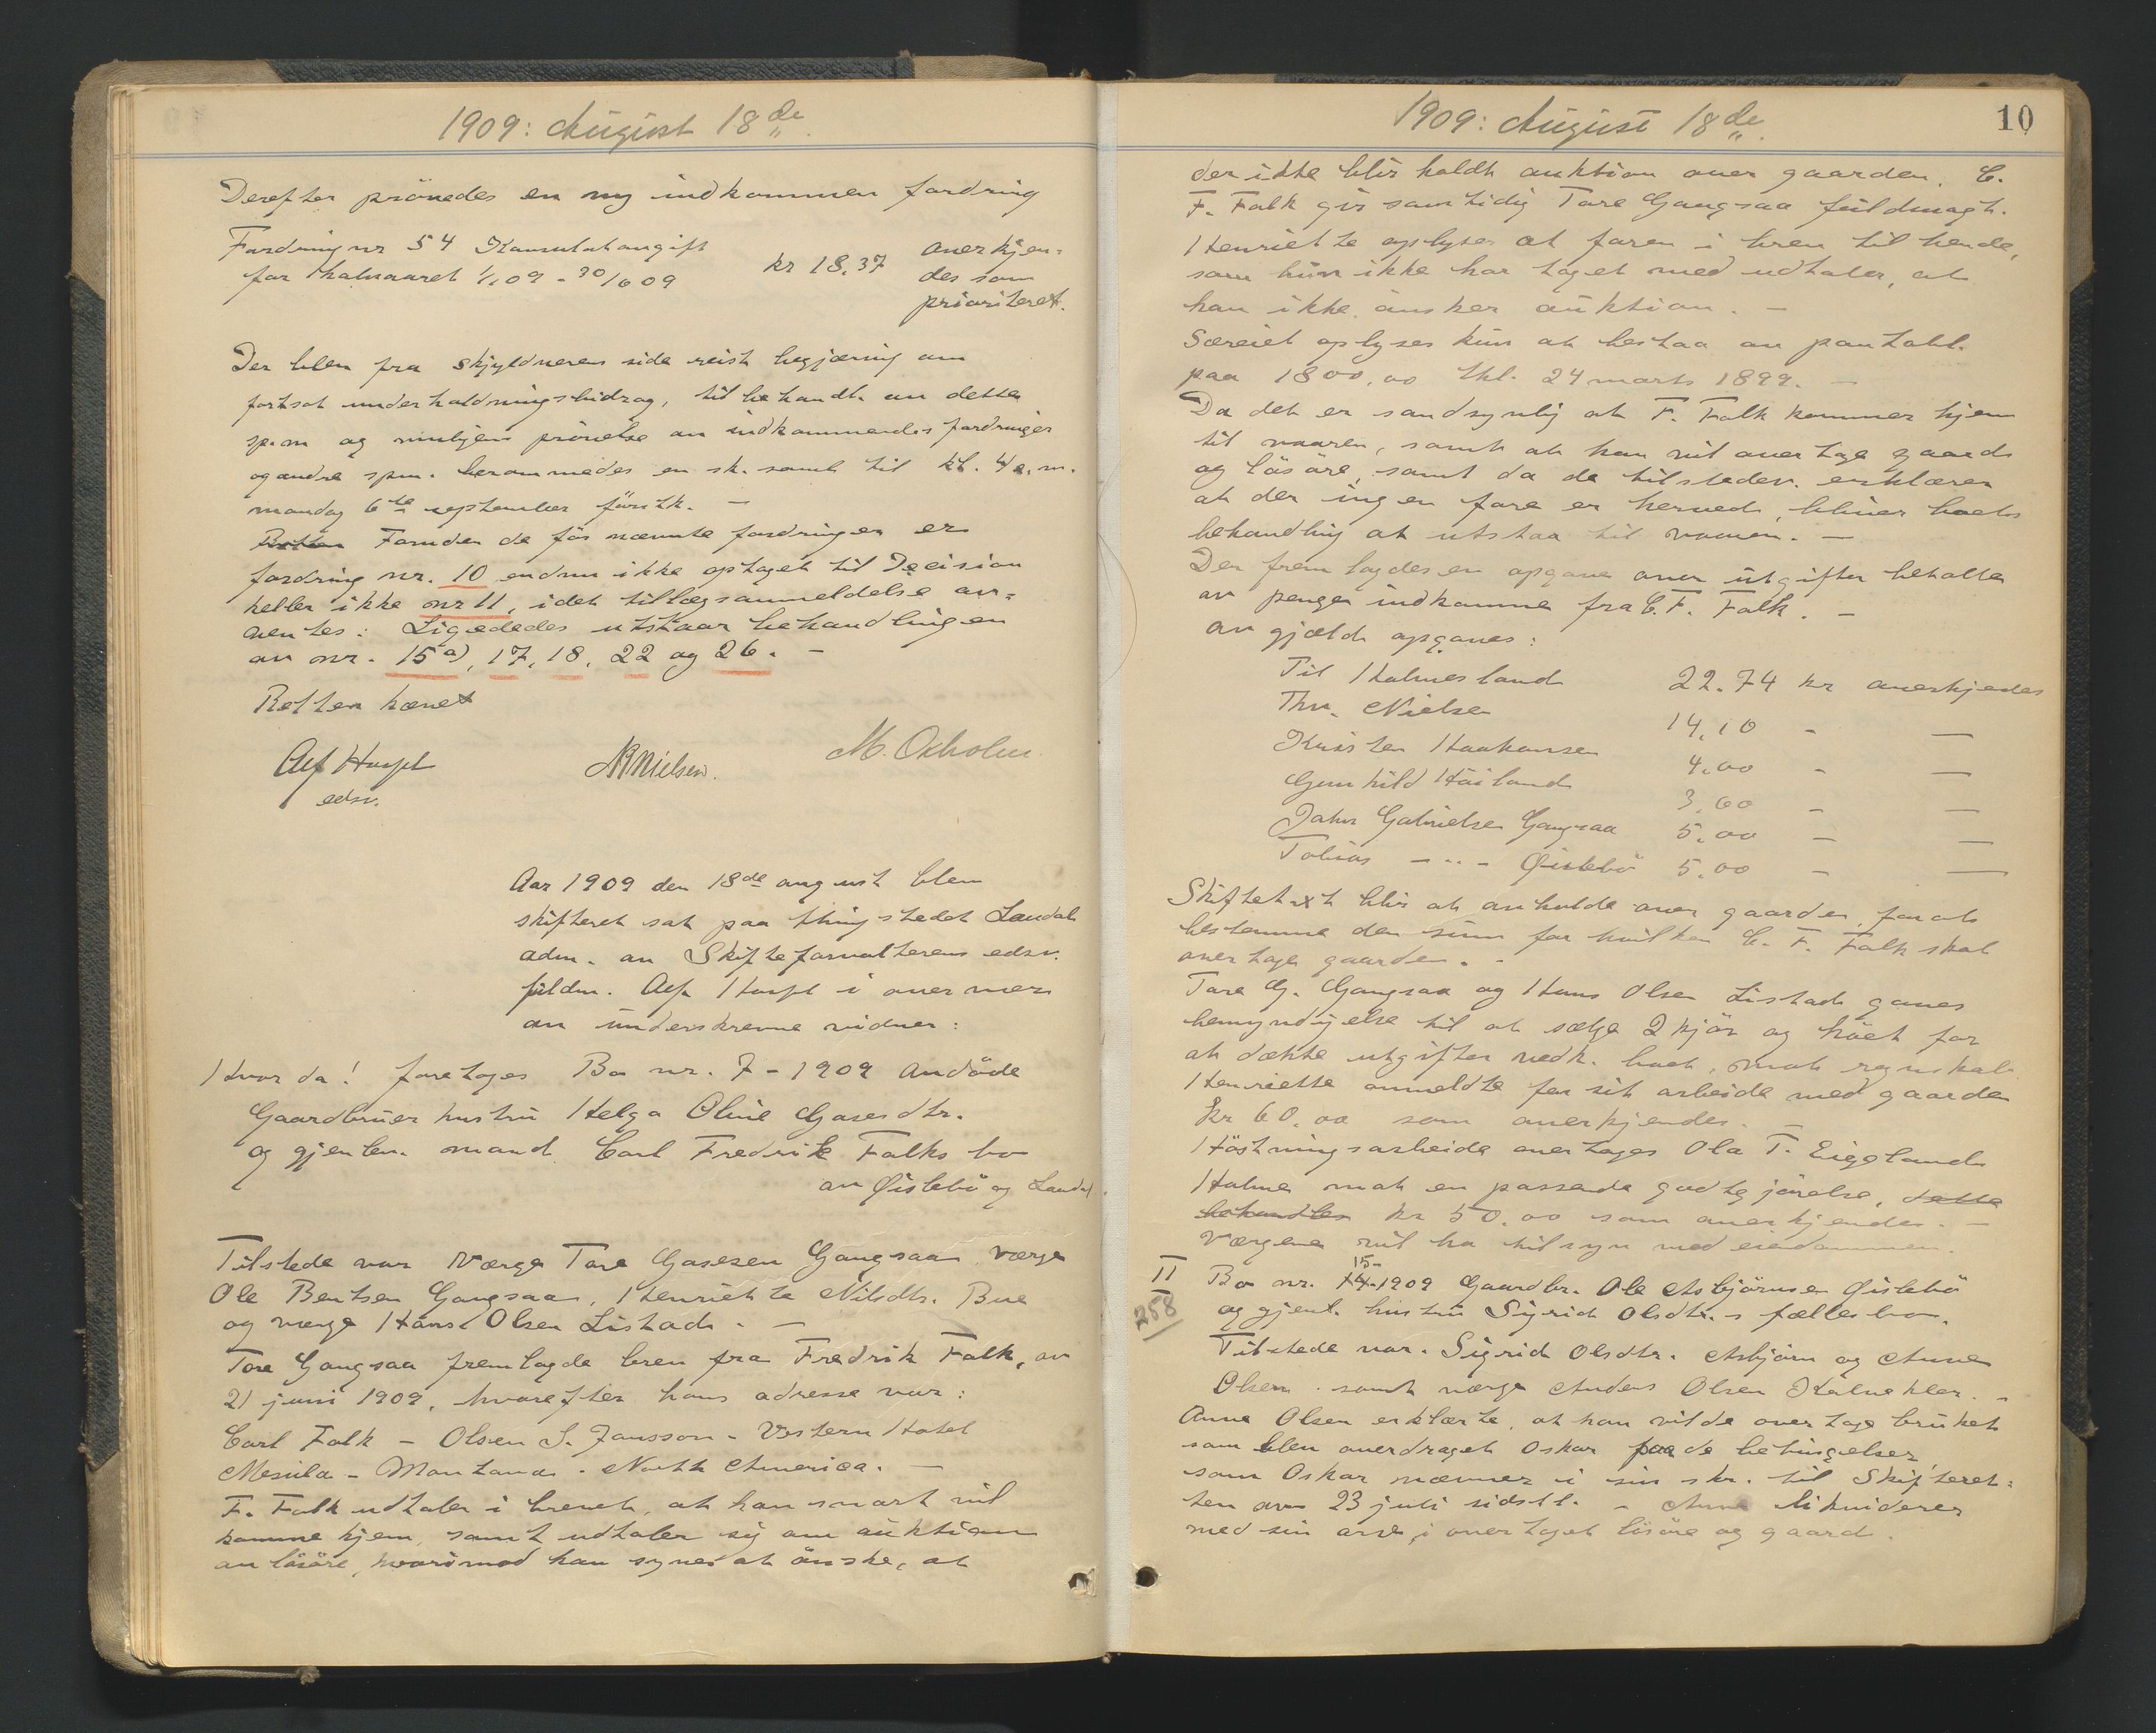 1909: August 18de
Derefter prövedes en ny indkommen fordring
Fordring nr 54 Konsulatavgift
for halvaaret 1/1 09 - 30/6 09 kr 18,37 anerkjen-
des som
prioritert.
Der blev fra skyldnerens side reist begjæring om
fortsat underholdningsbidrag, til behandl. av dette
sp.m og muligens prövelse av indkommendes fordringer
og andre spm. berammedes en sk. saml til kl. 4 e.m.
mandag 6te september förstk. —
Retten Foruden de för nævnte fordringer er
fordring nr. 10 endnu ikke optaget til Decision
heller ikke nr 11, idet tillægsanmeldelse av-
ventes: Ligeledes utstaar behandlingen
av nr. 15a), 17, 18, 22 og 26. —
Retten hævet
Alf
edsv.
NB Nielsen. M. Oxholm
Aar 1909 den 18de august blev
skifteret sat paa thingstedet Laudal
adm. av Skifteforvalterens edsv.
fuldm. Alf i overvær
av underskrevne vidner:
Hvor da! foretoges Bo nr. 7 - 1909 avdöde
Gaardbruer hustru Helga Oline Gasesdtr.
og gjenlev. mand Carl Fredrik Falks bo
av Øislebö og Laudal
Tilstede var Værge Tore Gasesen Gangsaa værge
Ole Bentsen Gangsaa, Henriette Nilsdtr. Bue
og værge Hans Olsen Listad. —
Tore Gangsaa fremlagde brev fra Fredrik Falk, av
21 juni 1909, hvorefter hans adresse var:
Carl Falk - Olsen S. Jansson - Vestern Hotel
Mesula - Montana - North America. —
F. Falk udtaler i brevet, at han snart vil
komme hjem, samt udtaler sig om auktion
av lösöre, hvorimod han synes at önske, at
1909: August 18de
10
der ikke blir holdt auktion over gaarden. C.
F. Falk gir samtidig Tore Gangsaa fuldmagt.
Henriette oplyser at faren i brev til hende,
som hun ikke har taget med udtaler, at
han ikke önsker auktion. —
Særeiet oplyses kun at bestaa av pantobl.
paa 1800,00 thl. 24 marts 1899. —
Da det er sandsynlig at F. Falk kommer hjem
til vaaren, samt at han vil overtage gaard
og lösöre, samt da de tilstedev. erklærer
at der ingen fare er herved, bliver boets
behandling at utstaa til vaaren. —
Der fremlagdes en opgave over utgifter betalte
av penge indkomne fra C. F. Falk. —
av gjæld opgaves:
Til Holmesland 22.74 kr anerkjendes
Thv. Nielsen 14,10 - —
Kristen Haakonsen 4.00 - —
Gunhild Häiland 3,60 - —
John Gabrielsen Gangsaa 5,00 - —
Tobias - „ - Øislebö 5,00 - —
Skiftetaxt blir at avholde over gaarden, for at
bestemme den sum for hvilken C. F. Falk skal
overtage gaarden. -
Tore G. Gangsaa og Hans Olsen Listad gaves
bemyndigelse til at sælge 2 kjör og höet for
at dække utgifter vedk. boet, mot regnskab.
Henriette anmeldte for sit arbeide med gaarden
kr 60,00 som anerkjendes. —
Höstningsarbeide overtages Ola T. Eigeland
Holme mot en passende godtgjörelse, dette
behandles kr 50,00 som anerkjendes. —
Værgene vil ha tilsyn med eiendommen.
II Bo nr. 14 15-1909 Gaardbr. Ole Asbjörnsen Øislebö
258 og gjenl. hustru Sigrid Olsdtr.s fællesbo.
Tilstede var. Sigrid Olsdtr. Asbjörn og Anne
Olsen. samt værge Anders Olsen —
Anna Olsen erklærte, at han vilde overtage bruket
som blev overdraget Oskar paa de betingelser
som Oskar nævner i sin skr. til Skifteret-
ten av 23 juli sidstl. - Anna likviderer
med sin arv, i overtaget lösöre og gaard.